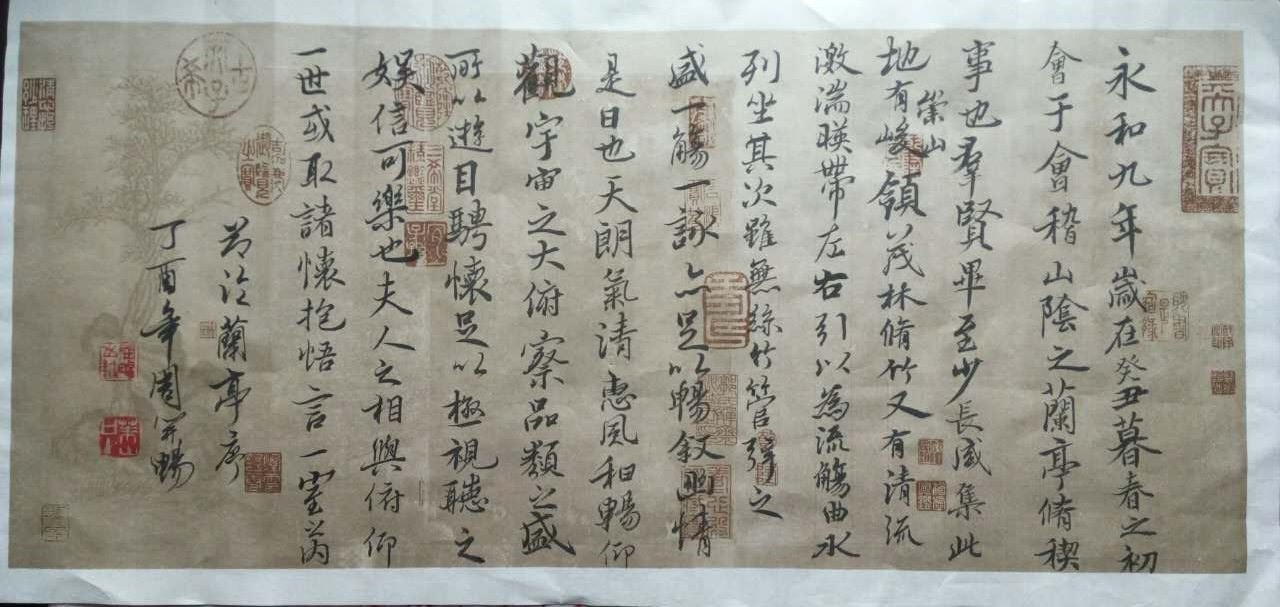 永和九年歲在癸丑暮春之初
會于會稽山陰之蘭亭脩稧
事也羣賢畢至少長咸集此
地有崇山峻領茂林脩竹又有清流
激湍暎帶左右引以為流觴曲水
列坐其次雖無絲竹管弦之
盛一觴一詠亦足以暢敘幽情
是日也天朗氣清惠風和暢仰
觀宇宙之大俯察品類之盛
所以遊目騁懷足以極視聽之
娛信可樂也夫人之相與俯仰
一世或取諸懷抱悟言一室內
蘭亭序
丁酉年周暢
古希天子
三希堂精鑑璽
宜子孫
嘉慶御覽之寶